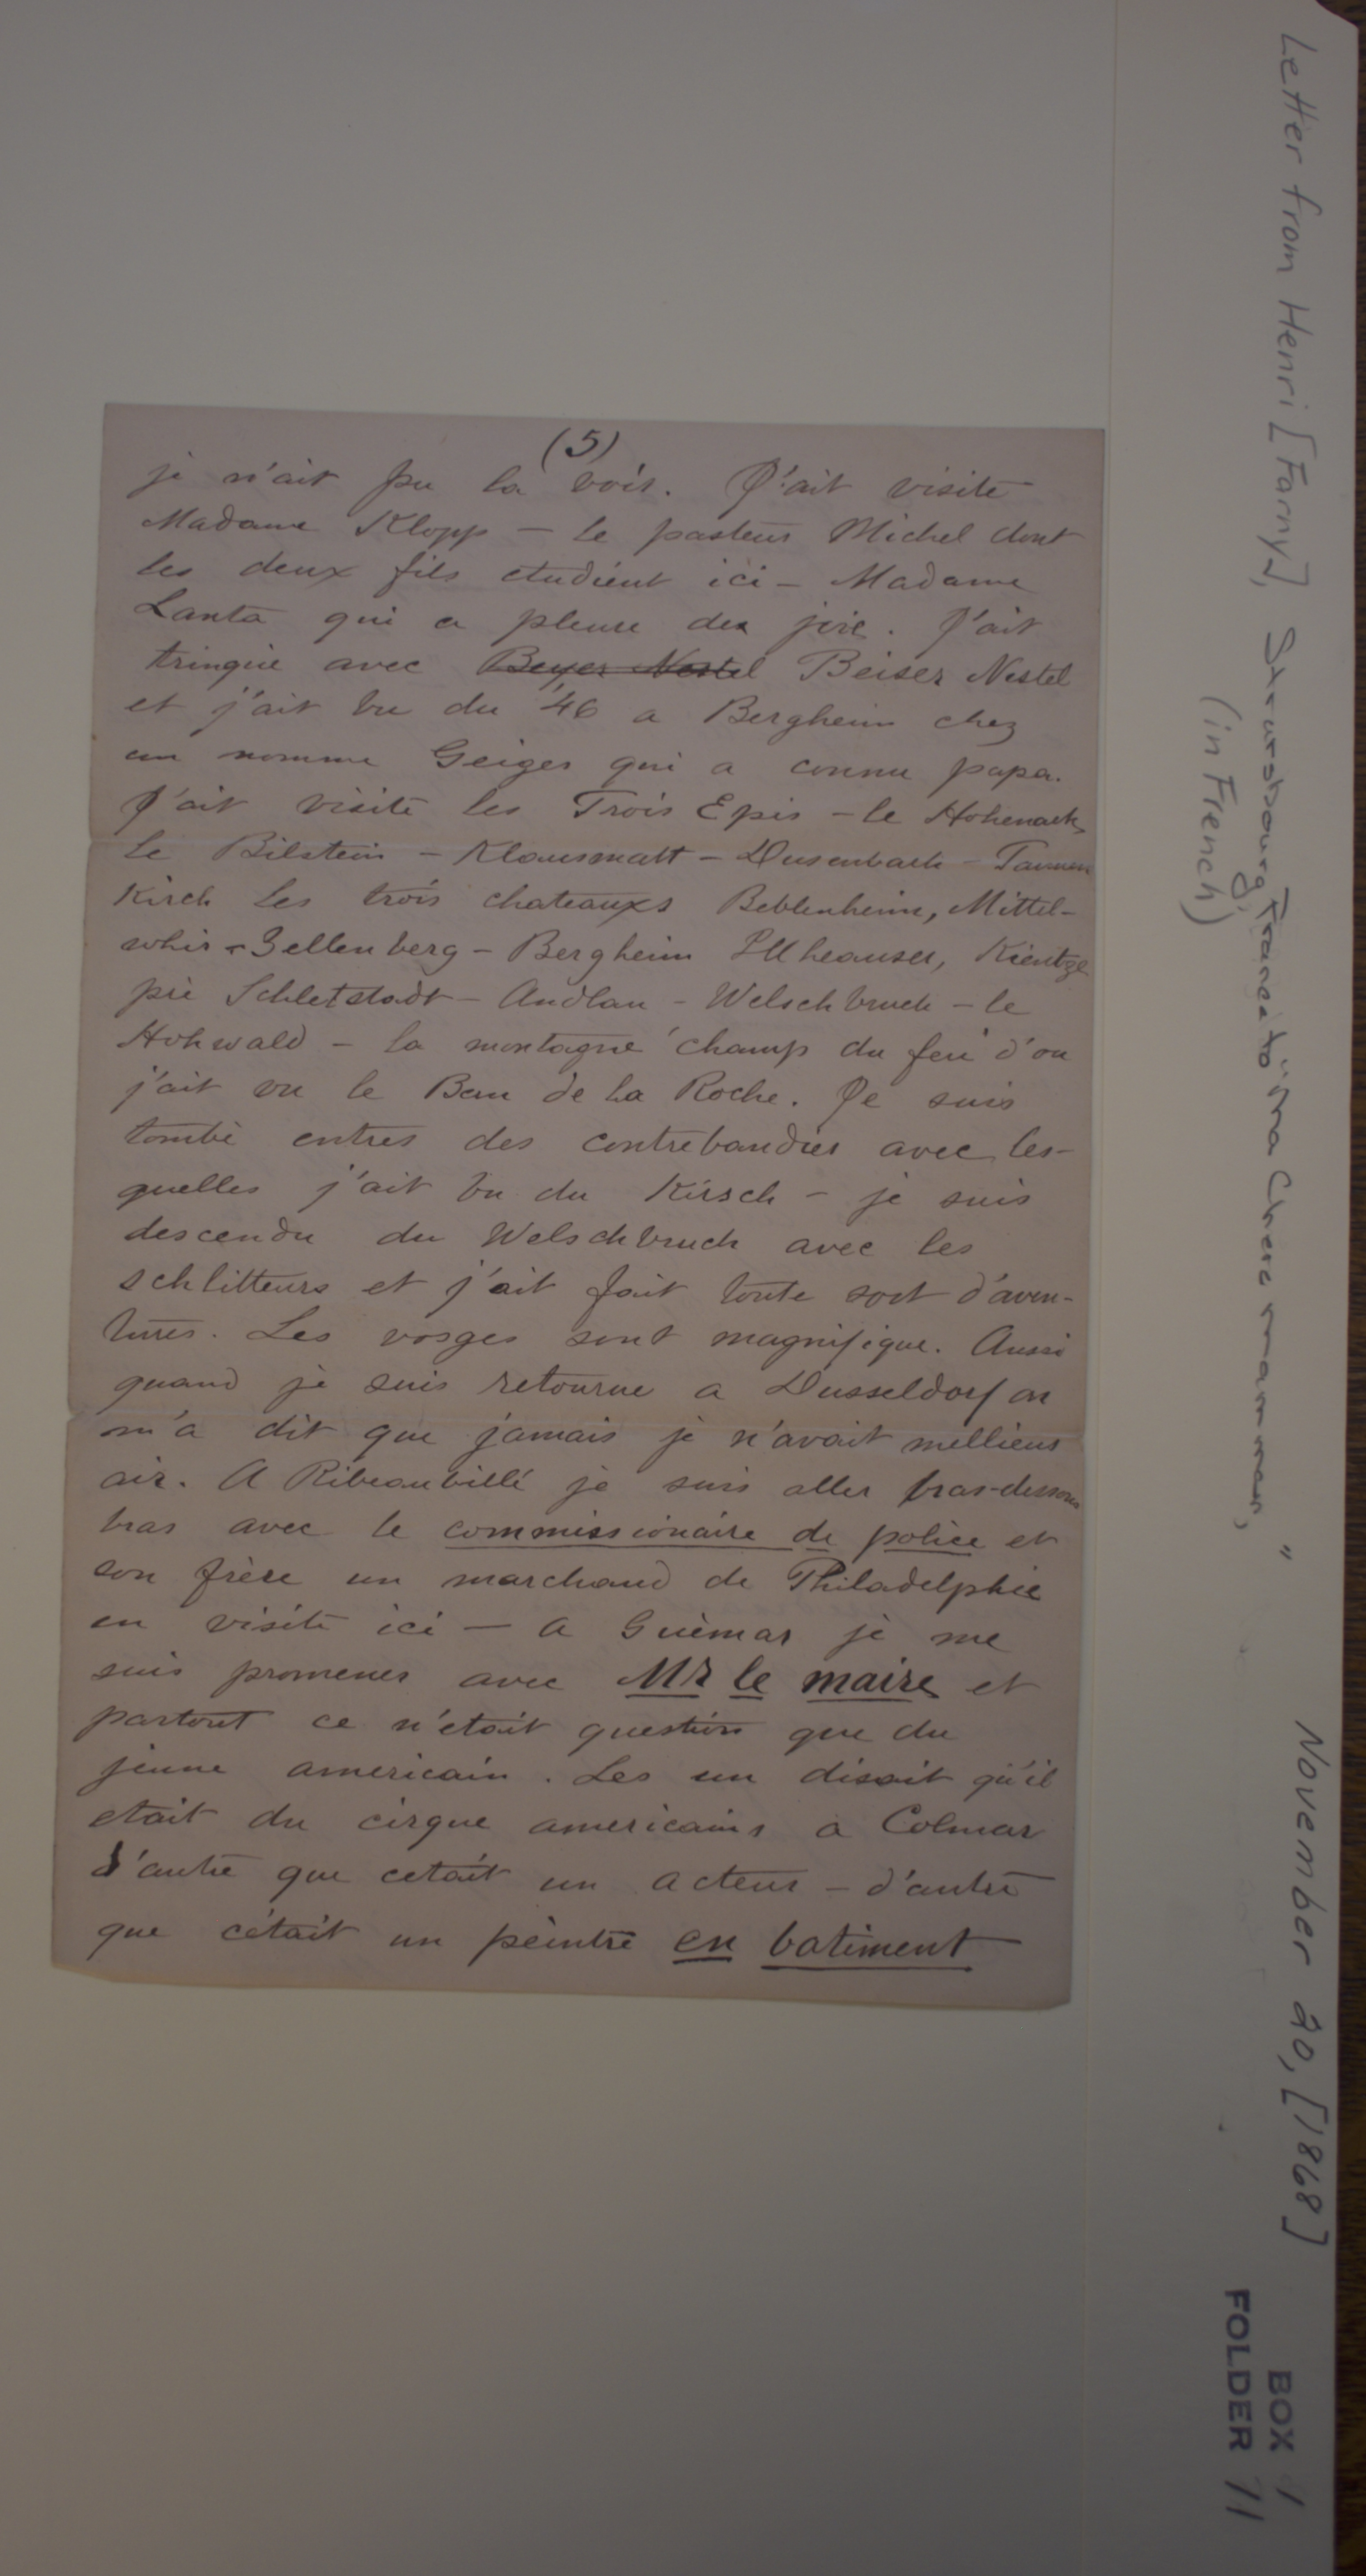 (5)
je n'ait pu la voir. J'ait visite
Madame Klopp — le pasteur Michel dont
les deux fils etudient ici — Madame
Lanta qui a pleure de joie. J'ait
trinquie avec Beyer Nestel Beiser Nestel
et j'ait bu du '46 a Bergheim chez
un nomme Geiger qui a connu papa.
J'ait visite les Trois Epis — le Hohenack
le Bilstein — Klausmatt — Dusenbach — Tannen
Kirch les trois chateauxs Beblenheim, Mittel-
whir — Zellenberg — Bergheim Illheauser, Kientze
pie Schletstadt — Andlau — Welschbruch — le
Hohwald — la montagne champ du feu d'ou
j'ait vu le Ban de la Roche. Je suis
tombé entres des contrebandies avec les-
quelles j'ait bu du Kirsch — je suis
descendu du Welschbruch avec les
schlitteurs et j'ait fait toute sort d'aven-
tures. Les vosges sont magnifique. Aussi
quand je suis retourne a Dusseldorf on
m'a dit que jamais je n'avait mellieus
air. A Ribeauvillé je suis aller bras-dessous
bras avec le commissionaire de police et
son frère un marchand de Philadelphie
en visite ici — a Guémar je me
suis promener avec Mr le maire et
partout ce n'etait question que du
jeune americain. Les un disait qu'il
etait du cirque americains a Colmar
d'autre que cetait un acteur — d'autre
que c'était un peintre en batiment
Letter from Henri [Farny], Strausbourg, France to "Ma Chere mamman," November 20, [1868]
(in French)
BOX 1
FOLDER 11